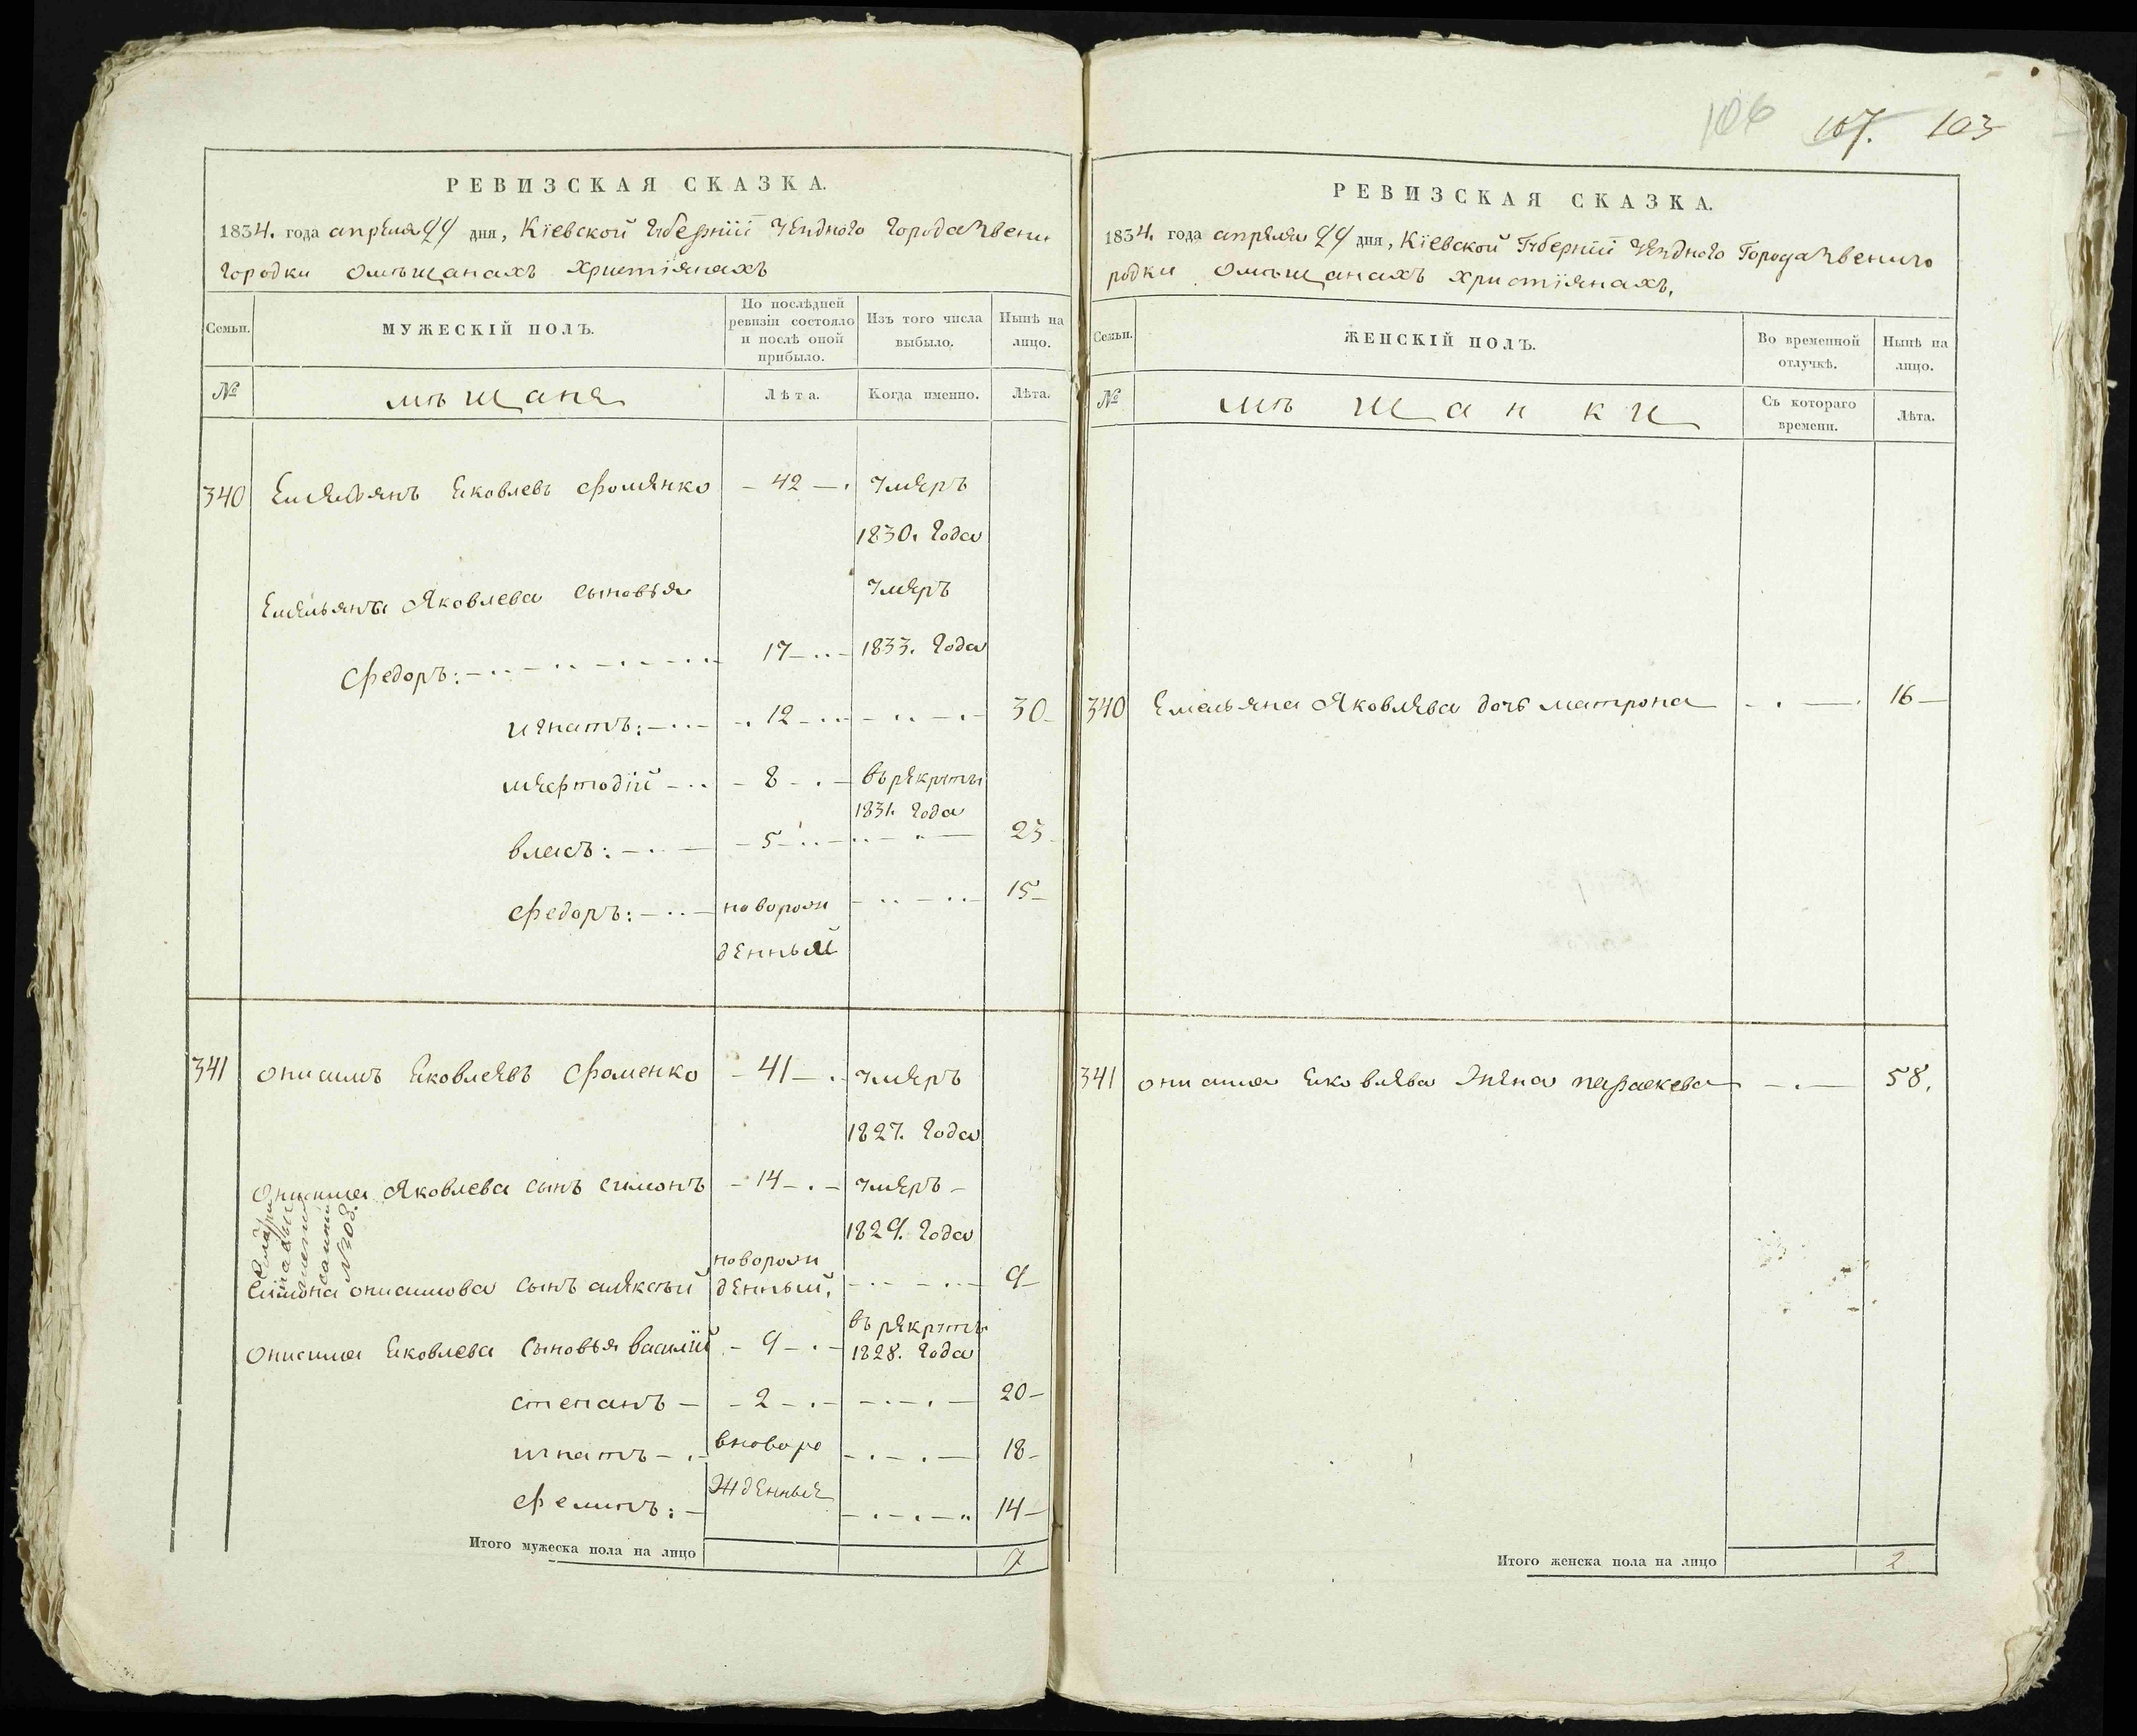 РЕВИЗСКАЯ СКАЗКА.
1834. года апреля 24 дня, Кіевской Губерніи Уезднаго Города Звени
городки Омѣщанахъ Христіянахъ
Семьи.
МУЖЕСКІЙ ПОЛЪ.
По послѣдней ревизіи состояло и послѣ оной прибыло.
Изъ того числа выбыло.
Нынѣ на лицо.
№
мѣщане
Лѣта.
Когда именно.
Лѣта.
340 Емельянъ Яковлевъ Фоменко – 42 – умеръ
1830. Года
Емельяна Яковлева сыновья умеръ
Федоръ: 17 1833. Года
игнатъ: 12 30
мефтодій 8 въ рекруты
1831. Года
власъ: 5 23
Федоръ: наворож 15
денный
341 онисимъ Яковлевъ Фоменко – 41 – умеръ
1827. Года
Онисима Яковлева сынъ симонъ – 14 – умеръ
1829. Года
наворож
Симона онисимова сынъ алексей денный, 9
въ рекруты
Онисима Яковлева Сыновья василій – 9 – 1828. Года
степанъ – 2 – 20
игнатъ вноворо 18
жденные
14
№ 303.
Итого мужеска пола на лицо 7
106 107. 103
РЕВИЗСКАЯ СКАЗКА.
1834. года апреля 24 дня, Кіевской Губерніи Уезднаго Города Звениго
родки Омѣщанахъ христіянахъ,
Семьи.
ЖЕНСКІЙ ПОЛЪ.
Во временной отлучкѣ.
Нынѣ на лицо.
№
мѣщанки
Съ котораго времени.
Лѣта.
340 Емельяна Яковлева дочь матрона 16
341 онисима Яковлева Жена параскева 58.
Итого женска пола на лицо 2